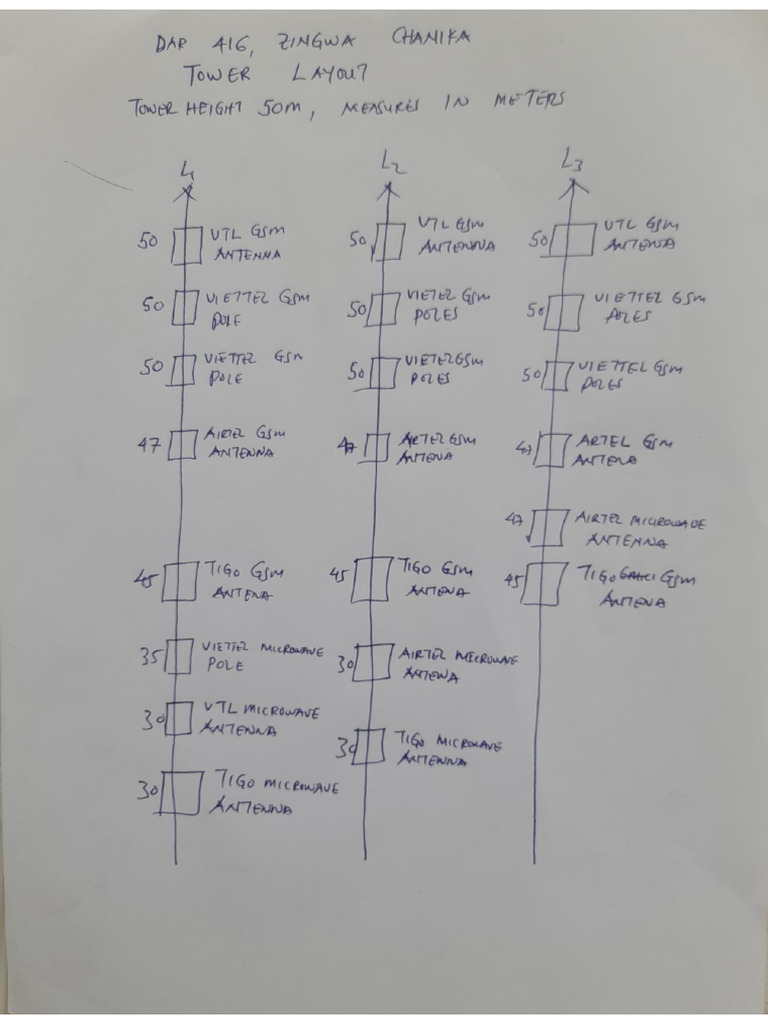 DAR 416, ZINGWA CHANIKA
TOWER LAYOUT
TOWER HEIGHT 50M, MEASURES IN METERS
L1
50 VTL GSM
ANTENNA
50 VIETTEL GSM
POLE
50 VIETTEL GSM
POLE
47 AIRTEL GSM
ANTENNA
45 TIGO GSM
ANTENA
35 VIETTEL MICROWAVE
POLE
30 VTL MICROWAVE
ANTENNA
30 TIGO MICROWAVE
ANTENNA
L2
50 VTL GSM
ANTENNA
50 VIETEL GSM
POLES
50 VIETEL GSM
POLES
47 ARTEL GSM
ANTENA
45 TIGO GSM
ANTENA
30 AIRTEL MICROWAVE
ANTENNA
30 TIGO MICROWAVE
ANTENNA
L3
50 VTL GSM
ANTENNA
50 VIETTEL GSM
POLES
50 VIETTEL GSM
POLES
47 ARTEL GSM
ANTENA
47 AIRTEL MICROWAVE
ANTENNA
45 TIGO GSM
ANTENA